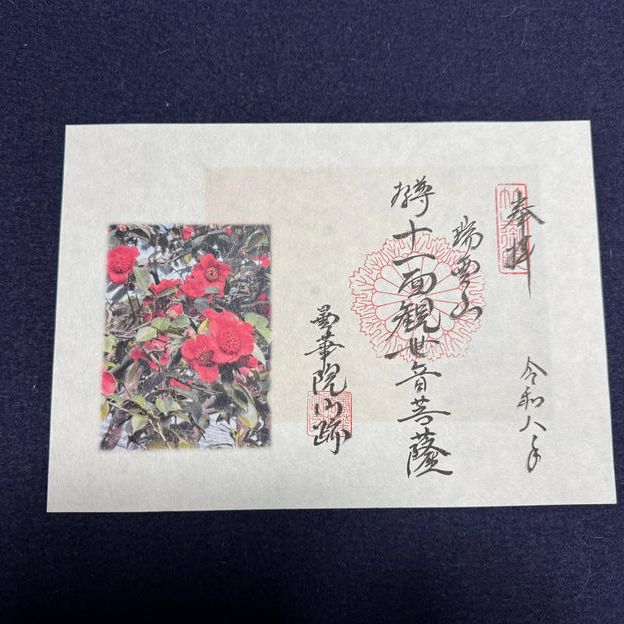 奉拝
瑞雲山
十一面観世音菩薩
曇華院門跡
令和八年